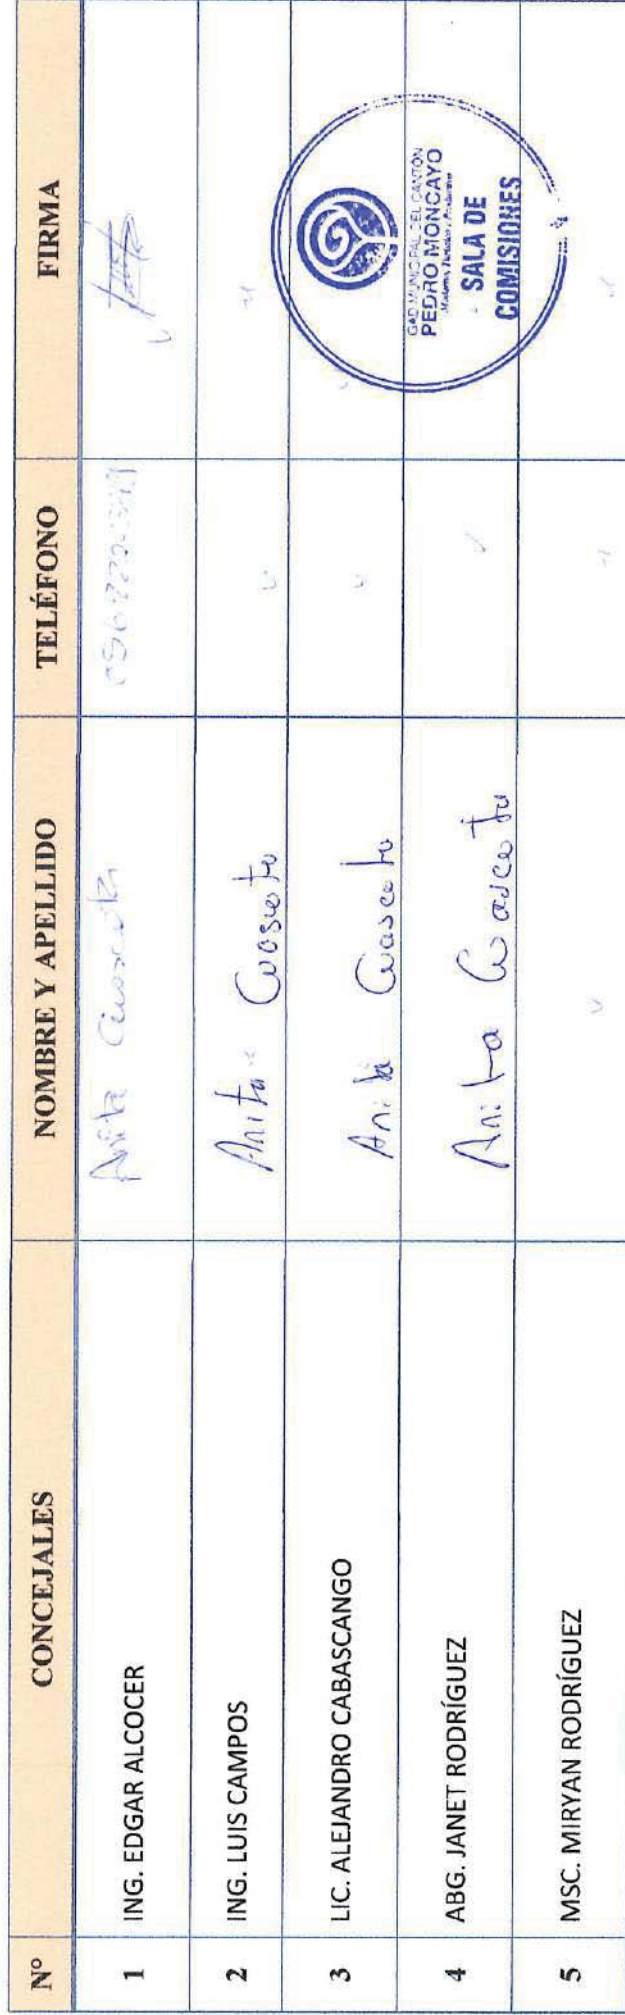 N° CONCEJALES NOMBRE Y APELLIDO TELÉFONO FIRMA
1 ING. EDGAR ALCOCER Anita
2 ING. LUIS CAMPOS Anita
3 LIC. ALEJANDRO CABASCANGO Anita
4 ABG. JANET RODRÍGUEZ Anita
5 MSC. MIRYAN RODRÍGUEZ
GAD MUNICIPAL DEL CANTÓN
PEDRO MONCAYO
SALA DE
COMISIONES